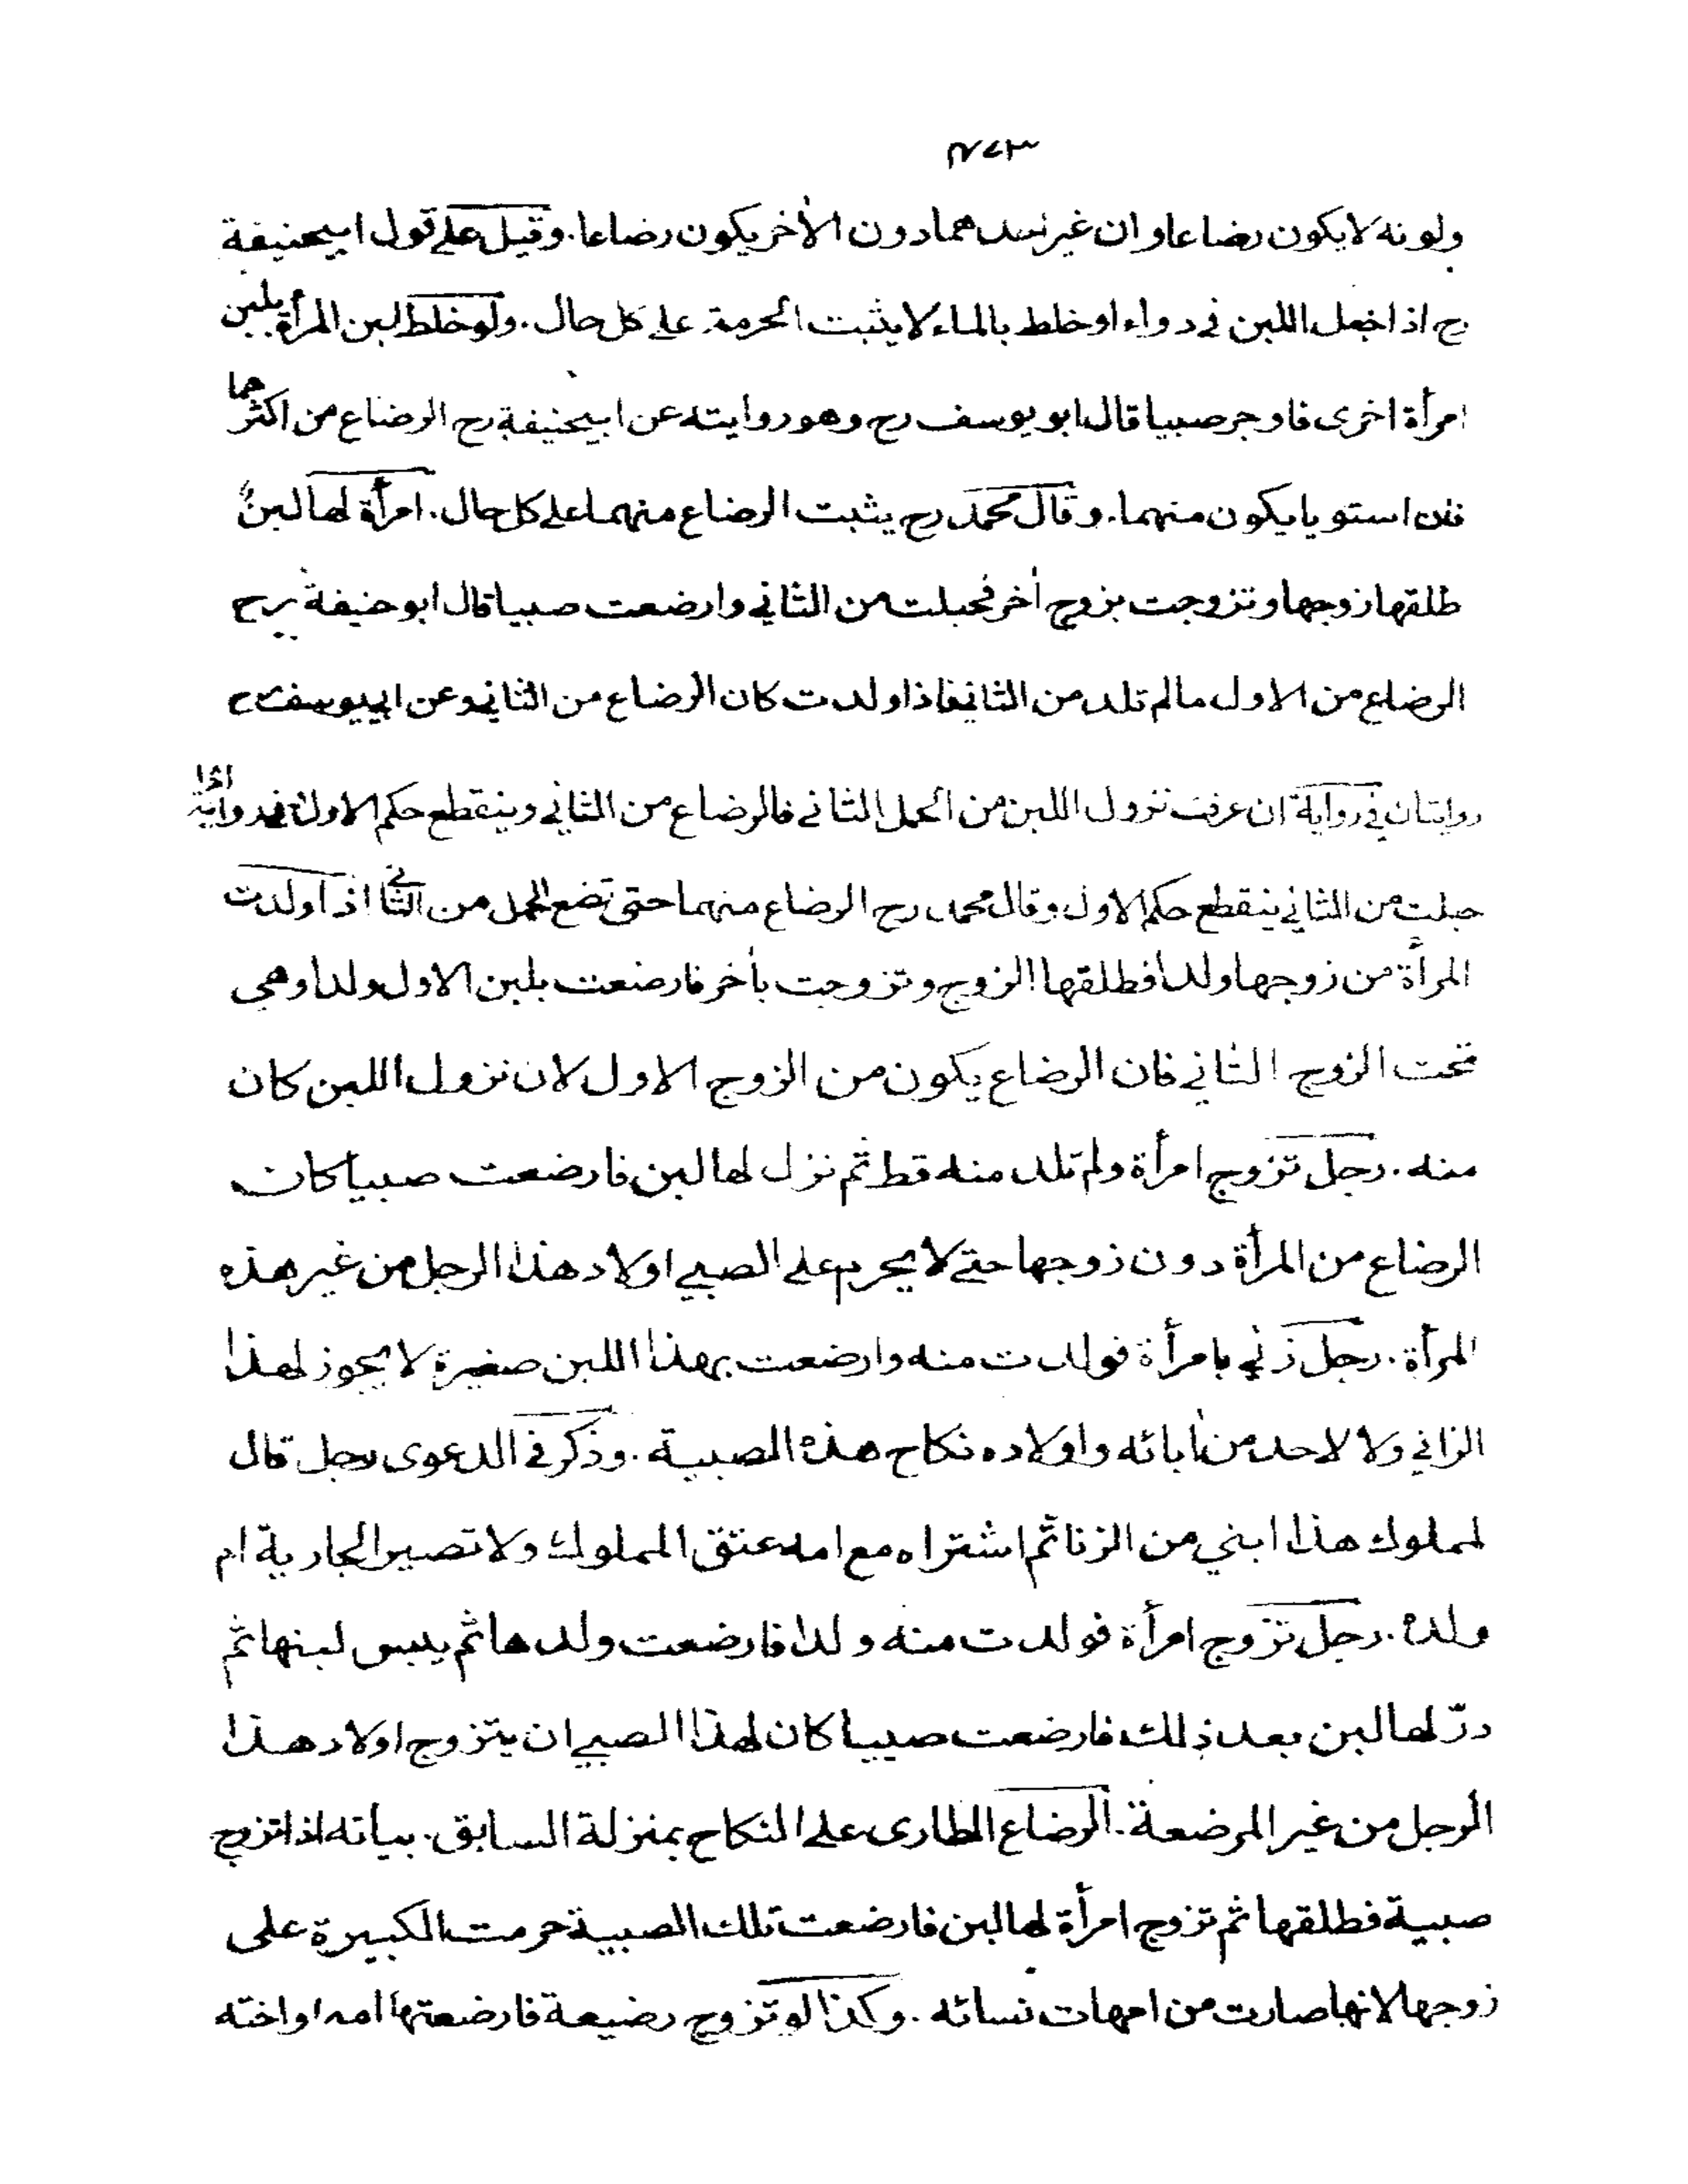 ٤٧٣
ولونه لا يكون رضاعا وان غير احدهما دون الأخر يكون رضاعا. وقيل على قول ابيحنيفة
رح اذا جعل اللبن في دواء او خلط بالماء لا يثبت الحرمة على كل حال. ولو خلط لبن المرأة بلبن
امرأة اخرى فاوجر صبيا قال ابو يوسف رح وهو روايته عن ابيحنيفة رح الرضاع من اكثرهما
فان استويا يكون منهما. وقال محمد رح يثبت الرضاع منهما على كل حال. امرأة لها لبنٌ
طلقها زوجها وتزوجت بزوج أخر فحبلت من الثاني وارضعت صبيا قال ابو حنيفة رح
الرضاع من الاول ما لم تلد من الثاني فاذا ولدت كان الرضاع من الثاني وعن ابي يوسف رح
روايتان في رواية ان عرفت نزول اللبن من الحمل الثاني فالرضاع من الثاني وينقطع حكم الاول وفي رواية اذا
حبلت من الثاني ينقطع حكم الاول وقال محمد رح الرضاع منهما حتى تضع الحمل من الثاني اذا ولدت
المرأة من زوجها ولدا فطلقها الزوج وتزوجت بأخر فارضعت بلبن الاول ولدا وهي
تحت الزوج الثاني فان الرضاع يكون من الزوج الاول لان نزول اللبن كان
منه. رجل تزوج امرأة ولم تلد منه قط ثم نزل لها لبن فارضعت صبيا كان
الرضاع من المرأة دون زوجها حتى لا يحرم على الصبي اولاد هذا الرجل من غير هذه
المرأة. رجل زنى بامرأة فولدت منه وارضعت بهذا اللبن صغيرة لا يجوز لهذا
الزاني ولا لاحد من أبائه واولاده نكاح هذه الصبية. وذكر في الدعوى رجل قال
لمملوك هذا ابني من الزنا ثم اشتراه مع امه عتق المملوك ولا تصير الجارية ام
ولده. رجل تزوج امرأة فولدت منه ولدا فارضعت ولدها ثم يبس لبنها ثم
درّ لها لبن بعد ذلك فارضعت صبيا كان لهذا الصبي ان يتزوج اولاد هذا
الرجل من غير المرضعة. الرضاع الطارى على النكاح بمنزلة السابق. بيانه اذا تزوج
صبية فطلقها ثم تزوج امرأة لها لبن فارضعت تلك الصبية حرمت الكبيرة على
زوجها لانها صارت من امهات نسائه. وكذا لو تزوج رضيعة فارضعتها امه او اخته